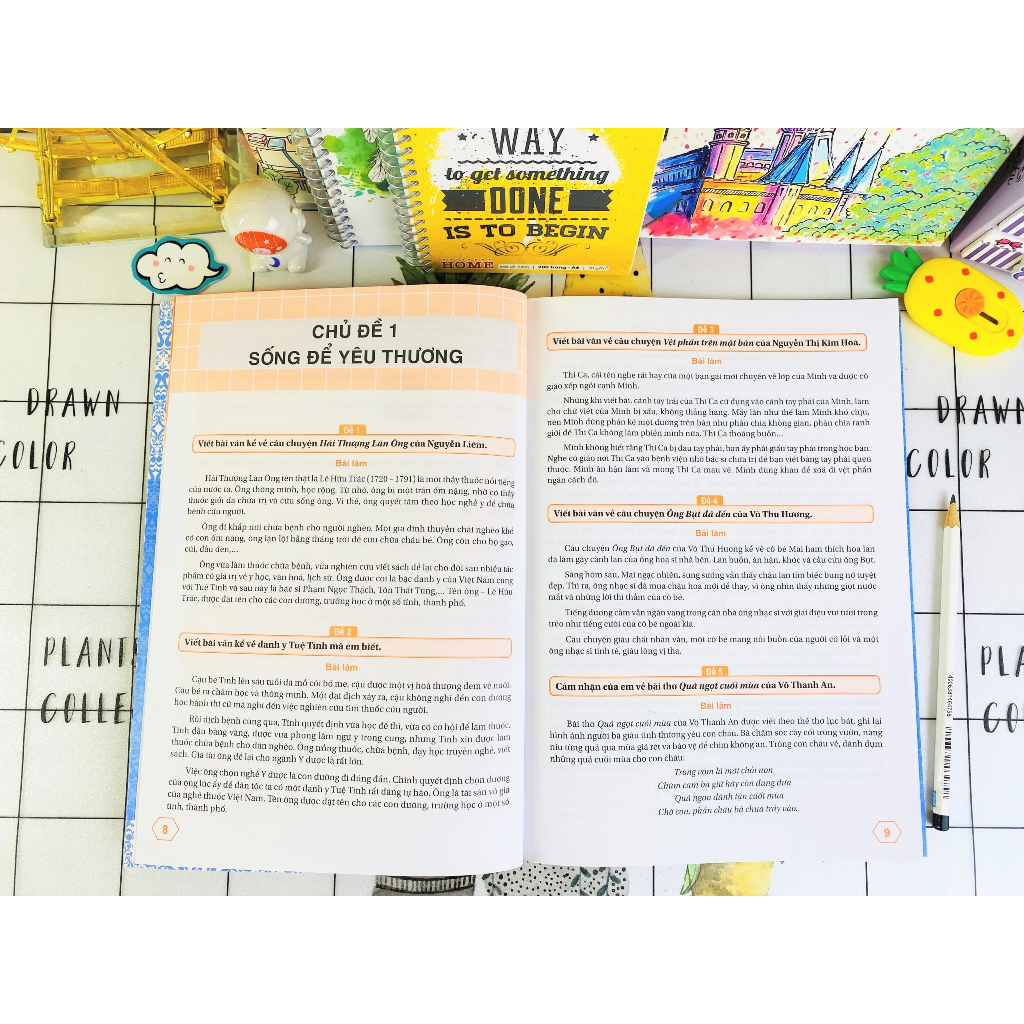 WAY
to get something
DONE
IS TO BEGIN
HOME
200 trang - A4
DRAWN
COLOR
PLANT
COLLE
DRAWN
COLOR
PLA
CO
CHỦ ĐỀ 1
SỐNG ĐỂ YÊU THƯƠNG
Đề 1
Viết bài văn kể về câu chuyện Hải Thượng Lãn Ông của Nguyễn Liêm.
Bài làm
Hải Thượng Lãn Ông tên thật là Lê Hữu Trác (1720 – 1791) là một thầy thuốc nổi tiếng
của nước ta. Ông thông minh, học rộng. Từ nhỏ, ông bị một trận ốm nặng, nhờ có thầy
thuốc giỏi đã chữa trị và cứu sống ông. Vì thế, ông quyết tâm theo học nghề y để chữa
bệnh cứu người.
Ông đi khắp nơi chữa bệnh cho người nghèo. Một gia đình thuyền chài nghèo khổ
có con ốm nặng, ông lặn lội hằng tháng trời để cứu chữa cháu bé. Ông còn cho họ gạo,
củi, dầu đèn,...
Ông vừa làm thuốc chữa bệnh, vừa nghiên cứu viết sách để lại cho đời sau nhiều tác
phẩm có giá trị về y học, văn hoá, lịch sử. Ông được coi là bậc danh y của Việt Nam cùng
với Tuệ Tĩnh và sau này là bác sĩ Phạm Ngọc Thạch, Tôn Thất Tùng,... Tên ông – Lê Hữu
Trác, được đặt tên cho các con đường, trường học ở một số tỉnh, thành phố.
Đề 2
Viết bài văn kể về danh y Tuệ Tĩnh mà em biết.
Bài làm
Cậu bé Tĩnh lên sáu tuổi đã mồ côi bố mẹ, cậu được một vị hoà thượng đem về nuôi.
Cậu bé ra chăm học và thông minh. Một đợt dịch xảy ra, cậu không nghĩ đến con đường
học hành thi cử mà nghĩ đến việc nghiên cứu tìm thuốc cứu người.
Rồi dịch bệnh cũng qua, Tĩnh quyết định vừa học để thi, vừa có cơ hội để làm thuốc.
Tĩnh đậu bảng vàng, được vua phong làm ngự y trong cung, nhưng Tĩnh xin được làm
thuốc chữa bệnh cho dân nghèo. Ông trồng thuốc, chữa bệnh, dạy học truyền nghề, viết
sách. Gia tài ông để lại cho ngành Y được là rất lớn.
Việc ông chọn nghề Y được là con đường đi đúng đắn. Chính quyết định chọn đường
của ông lúc ấy để dân tộc ta có một danh y Tuệ Tĩnh rất đáng tự hào. Ông là tài sản vô giá
của nghề thuốc Việt Nam. Tên ông được đặt tên cho các con đường, trường học ở một số
tỉnh, thành phố.
8
Đề 3
Viết bài văn về câu chuyện Vệt phấn trên mặt bàn của Nguyễn Thị Kim Hoà.
Bài làm
Thi Ca, cái tên nghe rất hay của một bạn gái mới chuyển về lớp của Minh và được cô
giáo xếp ngồi cạnh Minh.
Nhưng khi viết bài, cánh tay trái của Thi Ca cứ đụng vào cánh tay phải của Minh, làm
cho chữ viết của Minh bị xấu, không thẳng hàng. Mấy lần như thế làm Minh khó chịu,
nên Minh dùng phấn kẻ một đường trên bàn như phân chia không gian, phân chia ranh
giới để Thi Ca không làm phiền mình nữa. Thi Ca thoáng buồn...
Minh không biết rằng Thi Ca bị đau tay phải, bạn ấy phải giấu tay phải trong hộc bàn.
Nghe cô giáo nói Thi Ca vào bệnh viện nhờ bác sĩ chữa trị để bạn viết bằng tay phải quen
thuộc. Minh ân hận lắm và mong Thi Ca mau về. Minh dùng khăn để xoá đi vệt phấn
ngăn cách đó.
Đề 4
Viết bài văn về câu chuyện Ông Bụt đã đến của Võ Thu Hương.
Bài làm
Câu chuyện Ông Bụt đã đến của Võ Thu Hương kể về cô bé Mai ham thích hoa lan
đã làm gãy cành lan của ông hoạ sĩ nhà bên. Lan buồn, ân hận, khóc và cầu cứu ông Bụt.
Sáng hôm sau, Mai ngạc nhiên, sung sướng vẫn thấy chậu lan tím biếc bung nở tuyệt
đẹp. Thì ra, ông nhạc sĩ đã mua chậu hoa mới để thay, vì ông nhìn thấy những giọt nước
mắt và những lời thì thầm của cô bé.
Tiếng dương cầm vẫn ngân vang trong căn nhà ông nhạc sĩ với giai điệu vui tươi trong
trẻo như tiếng cười của cô bé ngoài kia.
Câu chuyện giàu chất nhân văn, một cô bé mang nỗi buồn của người có lỗi và một
ông nhạc sĩ tinh tế, giàu lòng vị tha.
Đề 5
Cảm nhận của em về bài thơ Quả ngọt cuối mùa của Võ Thanh An.
Bài làm
Bài thơ Quả ngọt cuối mùa của Võ Thanh An được viết theo thể thơ lục bát, ghi lại
hình ảnh người bà giàu tình thương yêu con cháu. Bà chăm sóc cây cối trong vườn, nâng
niu từng quả qua mùa giá rét và bảo vệ để chim không ăn. Trông con cháu về, dành dụm
những quả cuối mùa cho con cháu:
Trong vòm lá mới chồi non
Chùm cam bà giữ hãy còn đung đưa
Quả ngon dành tận cuối mùa
Chờ con, phần cháu bà chưa trảy vào.
9